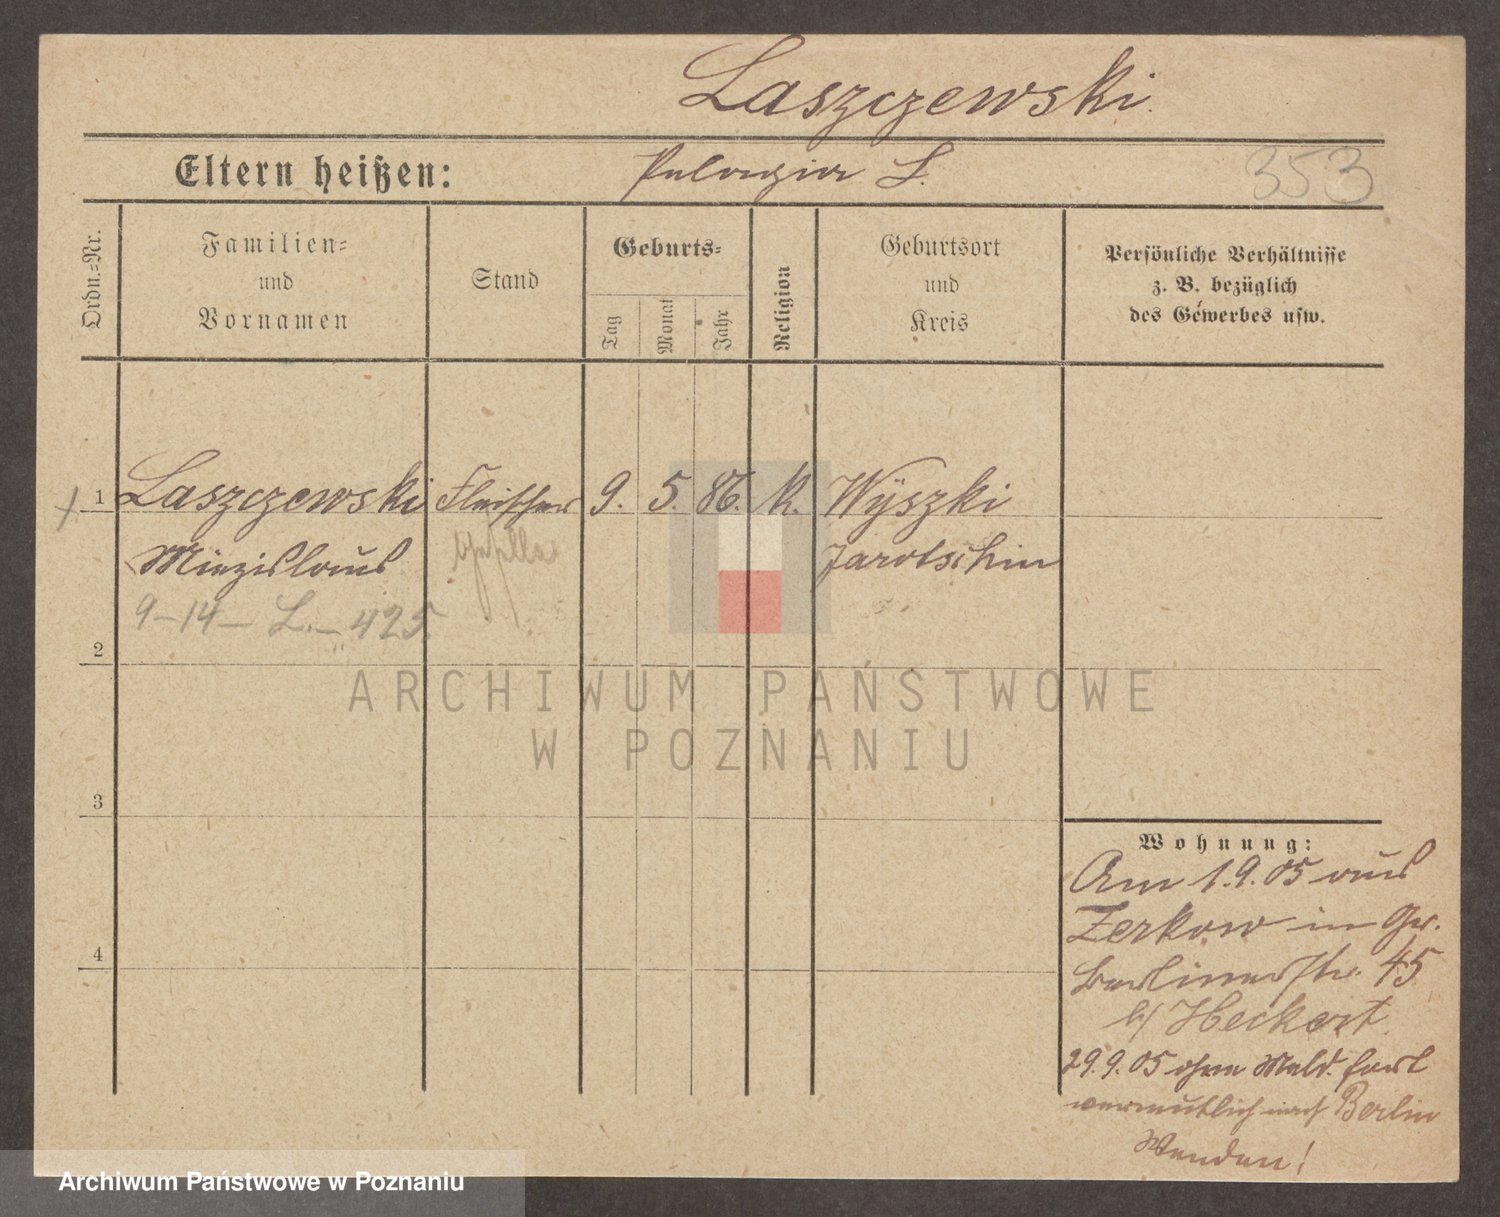 Laszczewski
Eltern heißen: Pelagia L.
353
Ordn.=Nr.
Familien=
und
Vornamen
Stand
Geburts=
Tag
Monat
Jahr
Religion
Geburtsort
und
Kreis
Persönliche Verhältnisse
z. B. bezüglich
des Gewerbes usw.
1 Laszczewski Fleischer 9. 5. 86. k. Wyszki
Miezislaus Jarotschin
9-14- L. - 425.
2
3
4
Wohnung:
Am 1.9.05 aus
Zerkow in Gr.
Berlinerstr. 45
b/ Heckert
29.9.05 ohne Meld. fort
vermutlich nach Berlin
Wenden!
ARCHIWUM PAŃSTWOWE
W POZNANIU
Archiwum Państwowe w Poznaniu